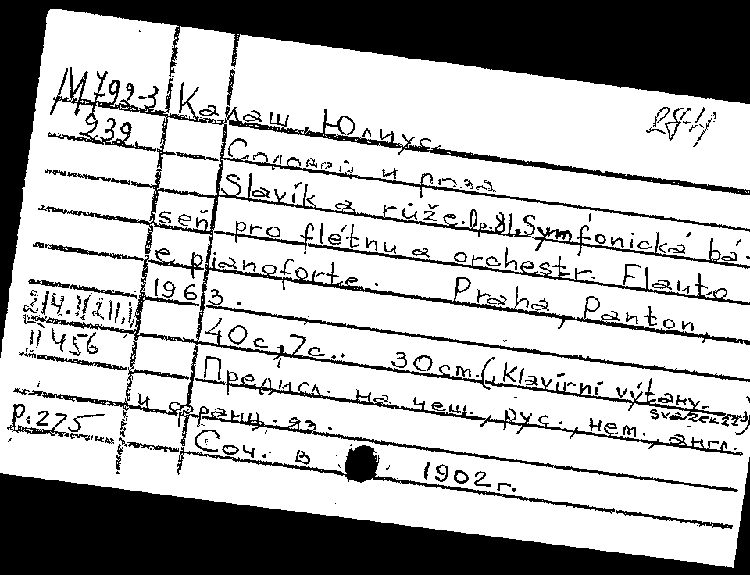 М 792-3
Калаш, Юлиус.
239.
Соловей и роза
Slavík a růže. Op. 81. Symfonická bá-
seň pro flétnu a orchestr. Flauto
e pianoforte. Praha, Panton,
1963.
2/4. II
II 456
40 с., 7 с. 30 cm. (Klavírní výtahy.
Предисл. на чеш., рус., нем., англ.
и франц. яз.
р. 275
Соч. в 1902 г.